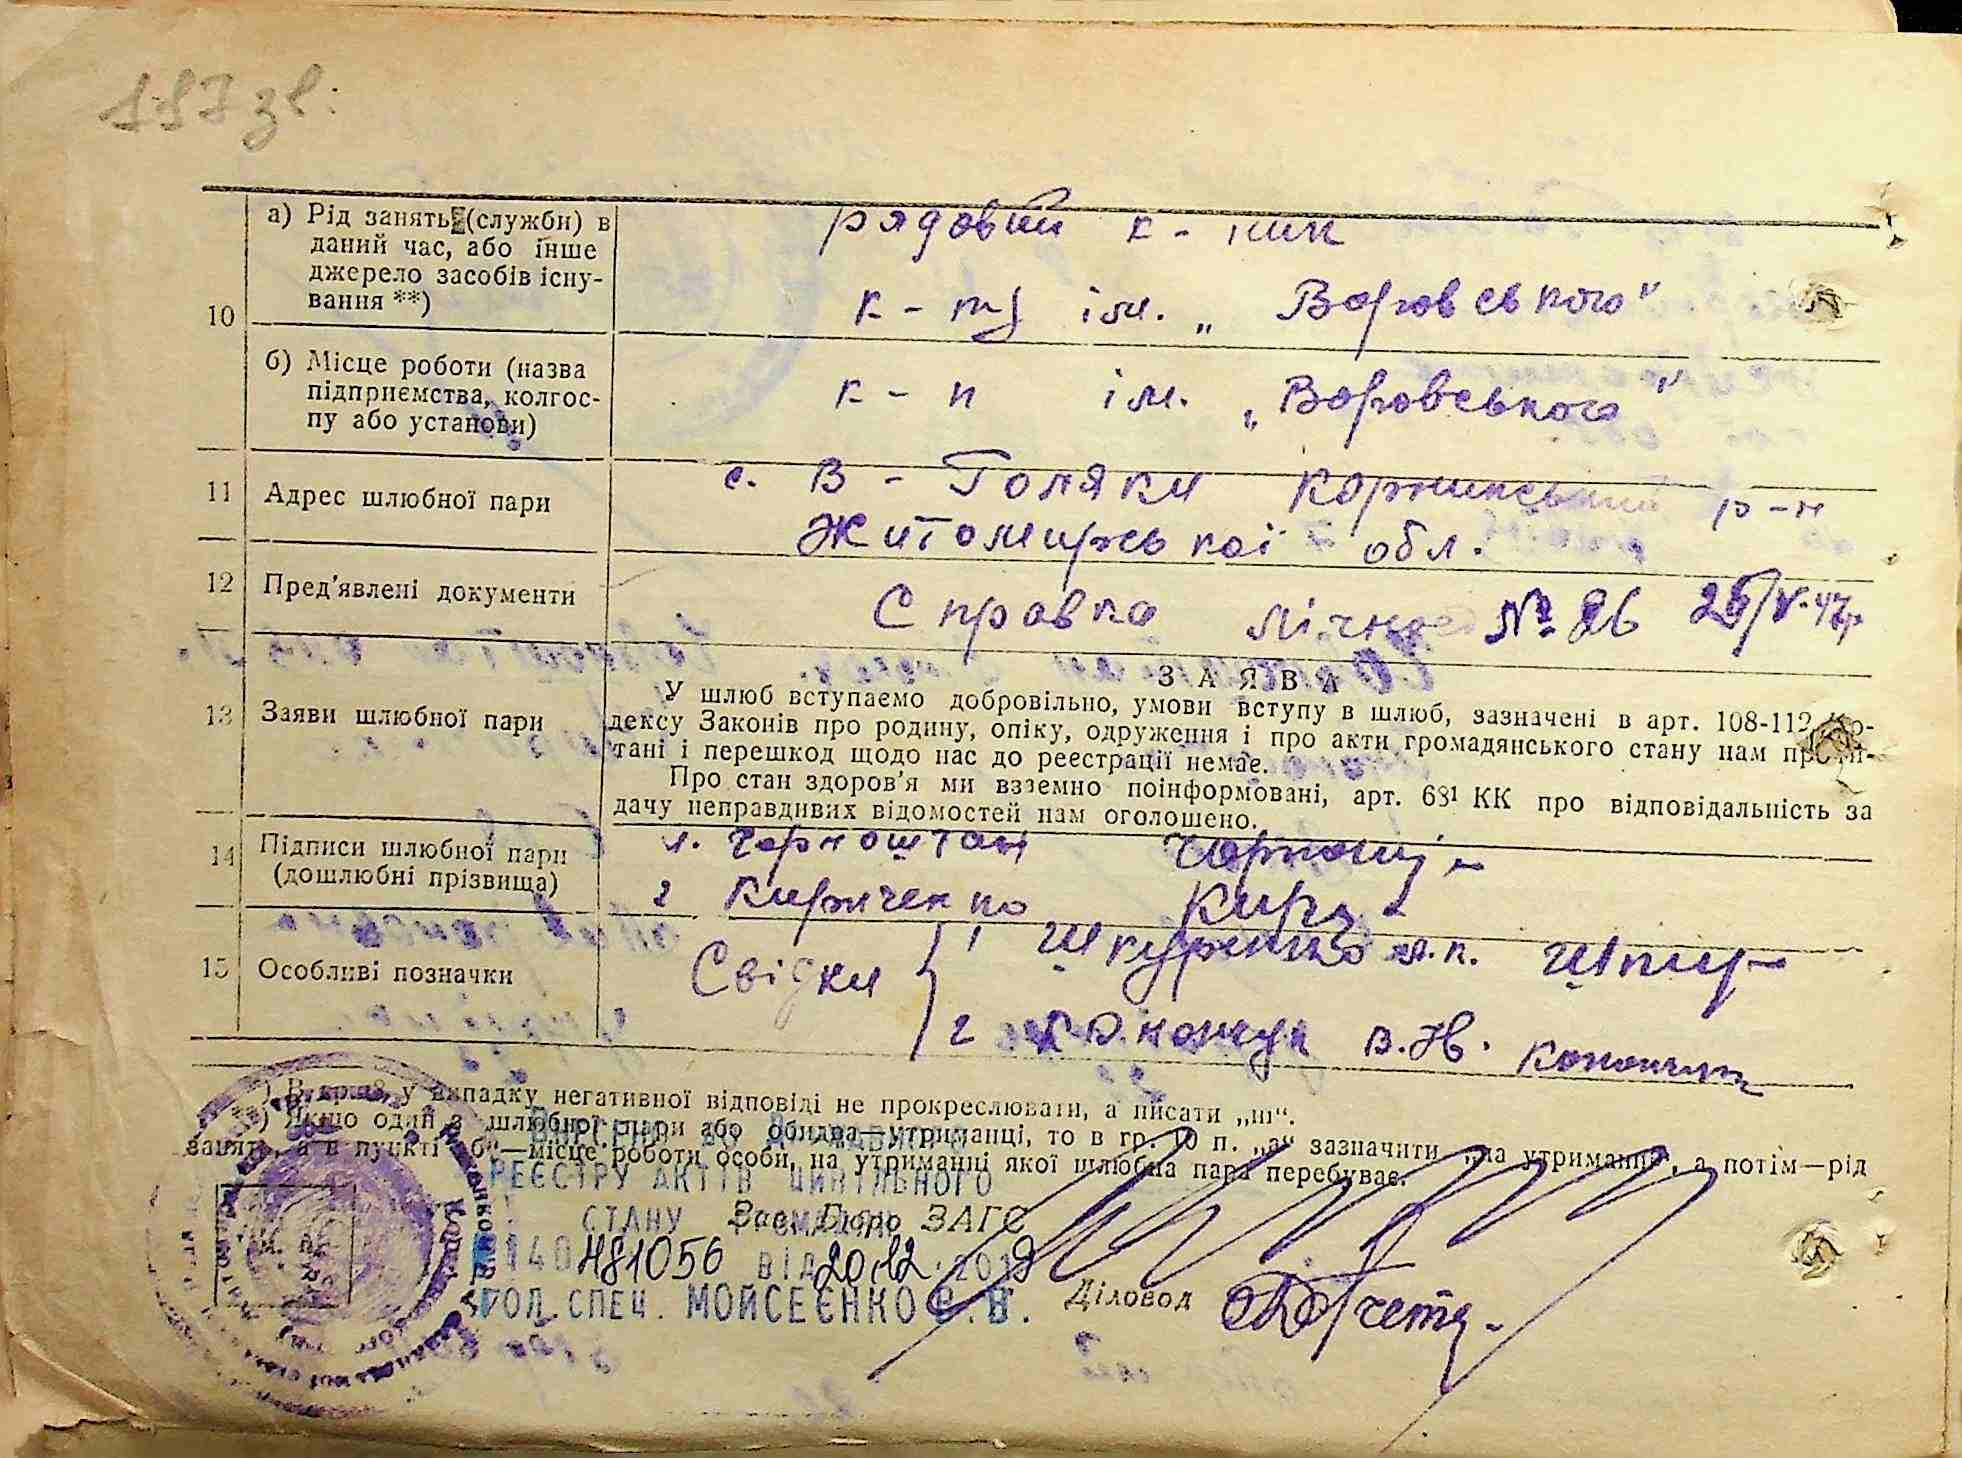 а) Рід занять (служби) в
даний час, або інше
джерело засобів існу-
вання **)
рядовий к-ник
к-пу ім. „Воровського"
10
б) Місце роботи (назва
підприємства, колгос-
пу або установи)
к-п ім. „Воровського"
11 Адрес шлюбної пари
с. В-Голяки Корнинський р-н
Житомирської обл.
12 Пред'явлені документи
Справка лічнос № 26
13 Заяви шлюбної пари
ЗАЯВА
У шлюб вступаємо добровільно, умови вступу в шлюб, зазначені в арт. 108-112 Ко-
дексу Законів про родину, опіку, одруження і про акти громадянського стану нам прочи-
тані і перешкод щодо нас до реєстрації немає.
Про стан здоров'я ми взаємно поінформовані, арт. 68¹ КК про відповідальність за
дачу неправдивих відомостей нам оголошено.
14 Підписи шлюбної пари
(дошлюбні прізвища)
1. Чорноштан
2 Кириченко Кири
15 Особливі позначки
Свідки
1 Шкуренко
2 Конончук В.Н.
*) В гр. 8, у випадку негативної відповіді не прокреслювати, а писати „ні".
**) Якщо один з шлюбної пари або обидва—утриманці, то в гр. 10 п. „а" зазначити „на утриманні", а потім—рід
занять, а в пункті „б"—місце роботи особи, на утриманні якої шлюбна пара перебуває.
ВНЕСЕНО ДО ДЕРЖАВНОГО
РЕЄСТРУ АКТІВ ЦИВІЛЬНОГО
СТАНУ ГРОМАДЯН
Зав. Бюро ЗАГС
140 481056 ВІД 20.12.2019
ГОЛ. СПЕЦ. МОЙСЕЄНКО Є. В.
Діловод